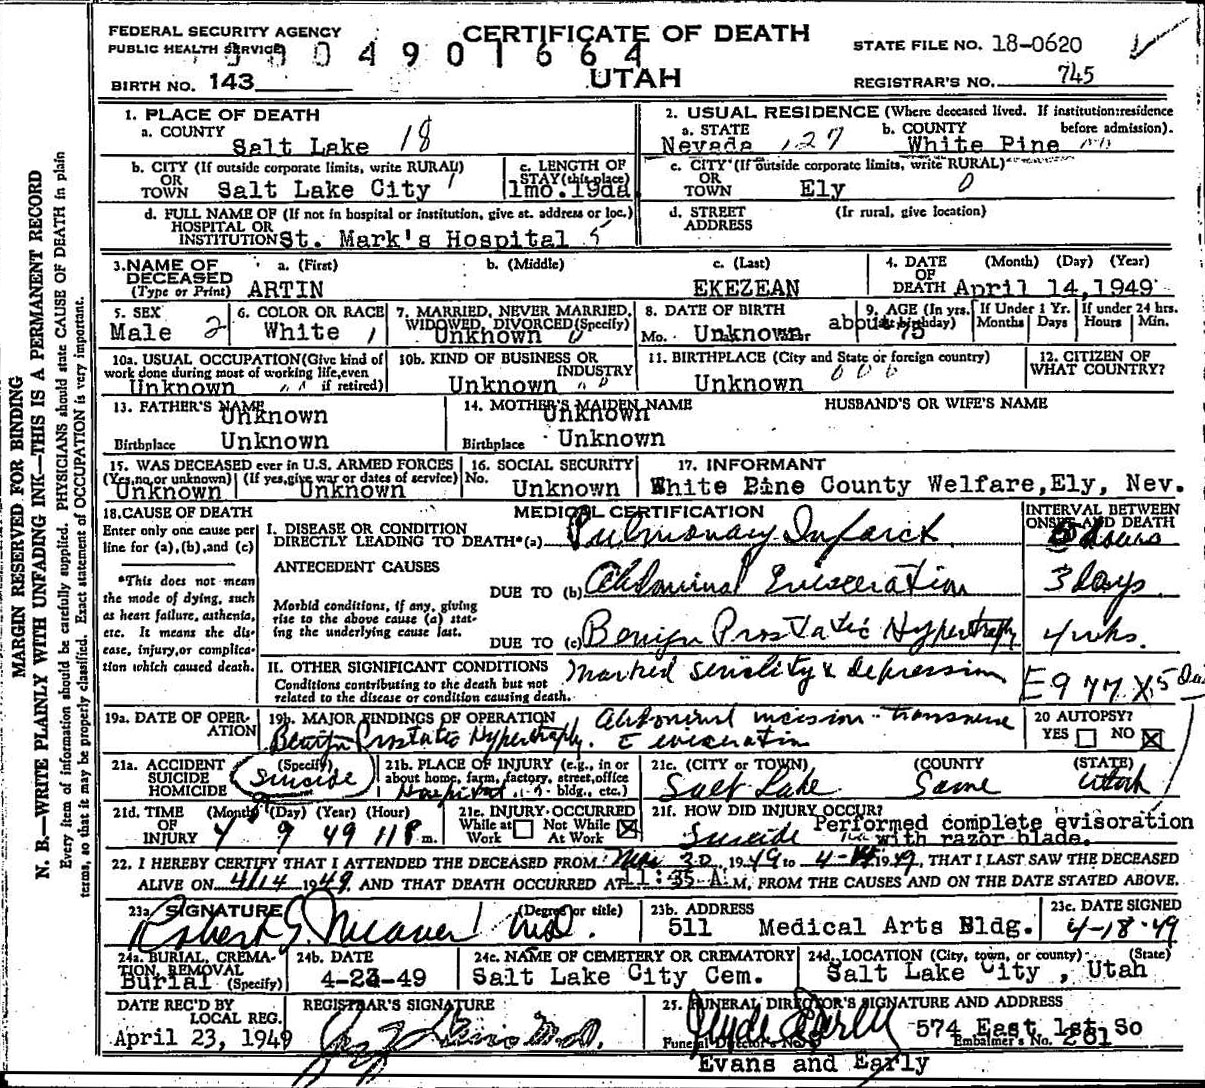 FEDERAL SECURITY AGENCY
PUBLIC HEALTH SERVICE
CERTIFICATE OF DEATH
UTAH
004901664
STATE FILE NO. 18-0620
BIRTH NO. 143
REGISTRAR'S NO. 745
MARGIN RESERVED FOR BINDING
N. B.—WRITE PLAINLY WITH UNFADING INK—THIS IS A PERMANENT RECORD
Every item of information should be carefully supplied. PHYSICIANS should state CAUSE OF DEATH in plain
terms, so that it may be properly classified. Exact statement of OCCUPATION is very important.
1. PLACE OF DEATH
a. COUNTY
Salt Lake 18
2. USUAL RESIDENCE (Where deceased lived. If institution:residence
before admission).
a. STATE
Nevada 127
b. COUNTY
White Pine
b. CITY (If outside corporate limits, write RURAL)
OR
TOWN Salt Lake City 1
c. LENGTH OF
STAY (this place)
1mo.19da
c. CITY (If outside corporate limits, write RURAL)
OR
TOWN Ely 0
d. FULL NAME OF (If not in hospital or institution, give st. address or loc.)
HOSPITAL OR
INSTITUTION St. Mark's Hospital 5
d. STREET (If rural, give location)
ADDRESS
3. NAME OF
DECEASED
(Type or Print)
a. (First)
ARTIN
b. (Middle)
c. (Last)
EKEZEAN
4. DATE (Month) (Day) (Year)
OF
DEATH April 14,1949
5. SEX
Male 2
6. COLOR OR RACE
White 1
7. MARRIED, NEVER MARRIED,
WIDOWED, DIVORCED (Specify)
Unknown 0
8. DATE OF BIRTH
Mo. Unknown
9. AGE (In yrs.
last birthday)
about 75
If Under 1 Yr.
Months Days
If under 24 hrs.
Hours Min.
10a. USUAL OCCUPATION (Give kind of
work done during most of working life, even
if retired)
Unknown
10b. KIND OF BUSINESS OR
INDUSTRY
Unknown
11. BIRTHPLACE (City and State or foreign country)
Unknown
12. CITIZEN OF
WHAT COUNTRY?
13. FATHER'S NAME
Unknown
Birthplace Unknown
14. MOTHER'S MAIDEN NAME
Unknown
Birthplace Unknown
HUSBAND'S OR WIFE'S NAME
15. WAS DECEASED ever in U.S. ARMED FORCES
(Yes, no, or unknown) (If yes, give war or dates of service)
Unknown Unknown
16. SOCIAL SECURITY
No.
Unknown
17. INFORMANT
White Pine County Welfare,Ely, Nev.
18. CAUSE OF DEATH
Enter only one cause per
line for (a), (b), and (c)
*This does not mean
the mode of dying, such
as heart failure, asthenia,
etc. It means the dis-
ease, injury, or complica-
tion which caused death.
MEDICAL CERTIFICATION
INTERVAL BETWEEN
ONSET AND DEATH
I. DISEASE OR CONDITION
DIRECTLY LEADING TO DEATH*(a) Pulmonary Infarct
ANTECEDENT CAUSES
DUE TO (b) Abdominal Evisceration 3 days
Morbid conditions, if any, giving
rise to the above cause (a) stat-
ing the underlying cause last.
DUE TO (c) Benign Prostatic Hypertrophy 4 wks.
II. OTHER SIGNIFICANT CONDITIONS
Conditions contributing to the death but not
related to the disease or condition causing death.
Marked senility & depression
E977X
19a. DATE OF OPER-
ATION
19b. MAJOR FINDINGS OF OPERATION
Abdominal incision - transverse
Benign Prostatic Hypertrophy. evisceration
20 AUTOPSY?
YES NO
21a. ACCIDENT
SUICIDE
HOMICIDE
(Specify)
Suicide
21b. PLACE OF INJURY (e.g., in or
about home, farm, factory, street, office
bldg., etc.)
Hospital
21c. (CITY OR TOWN) (COUNTY (STATE)
Salt Lake Same Utah
21d. TIME (Month) (Day) (Year) (Hour)
OF
INJURY 4 9 49 11 P m.
21e. INJURY OCCURRED
While at Not While
Work At Work
21f. HOW DID INJURY OCCUR?
Suicide Performed complete evisoration
with razor blade.
22. I HEREBY CERTIFY THAT I ATTENDED THE DECEASED FROM Mar 30 1949 to 4-14 1949, THAT I LAST SAW THE DECEASED
ALIVE ON 4/14 1949, AND THAT DEATH OCCURRED AT 11:35 A.M, FROM THE CAUSES AND ON THE DATE STATED ABOVE.
23a. SIGNATURE (Degree or title)
Robert G. Weaver MD.
23b. ADDRESS
511 Medical Arts Bldg.
23c. DATE SIGNED
4-18-49
24a. BURIAL, CREMA-
TION, REMOVAL
Burial (Specify)
24b. DATE
4-23-49
24c. NAME OF CEMETERY OR CREMATORY
Salt Lake City Cem.
24d. LOCATION (City, town, or county) (State)
Salt Lake City, Utah
DATE REC'D BY
LOCAL REG.
April 23, 1949
REGISTRAR'S SIGNATURE
M.D.
25. FUNERAL DIRECTOR'S SIGNATURE AND ADDRESS
574 East 1st So
Funeral Director No. Embalmer's No. 261
Evans and Early